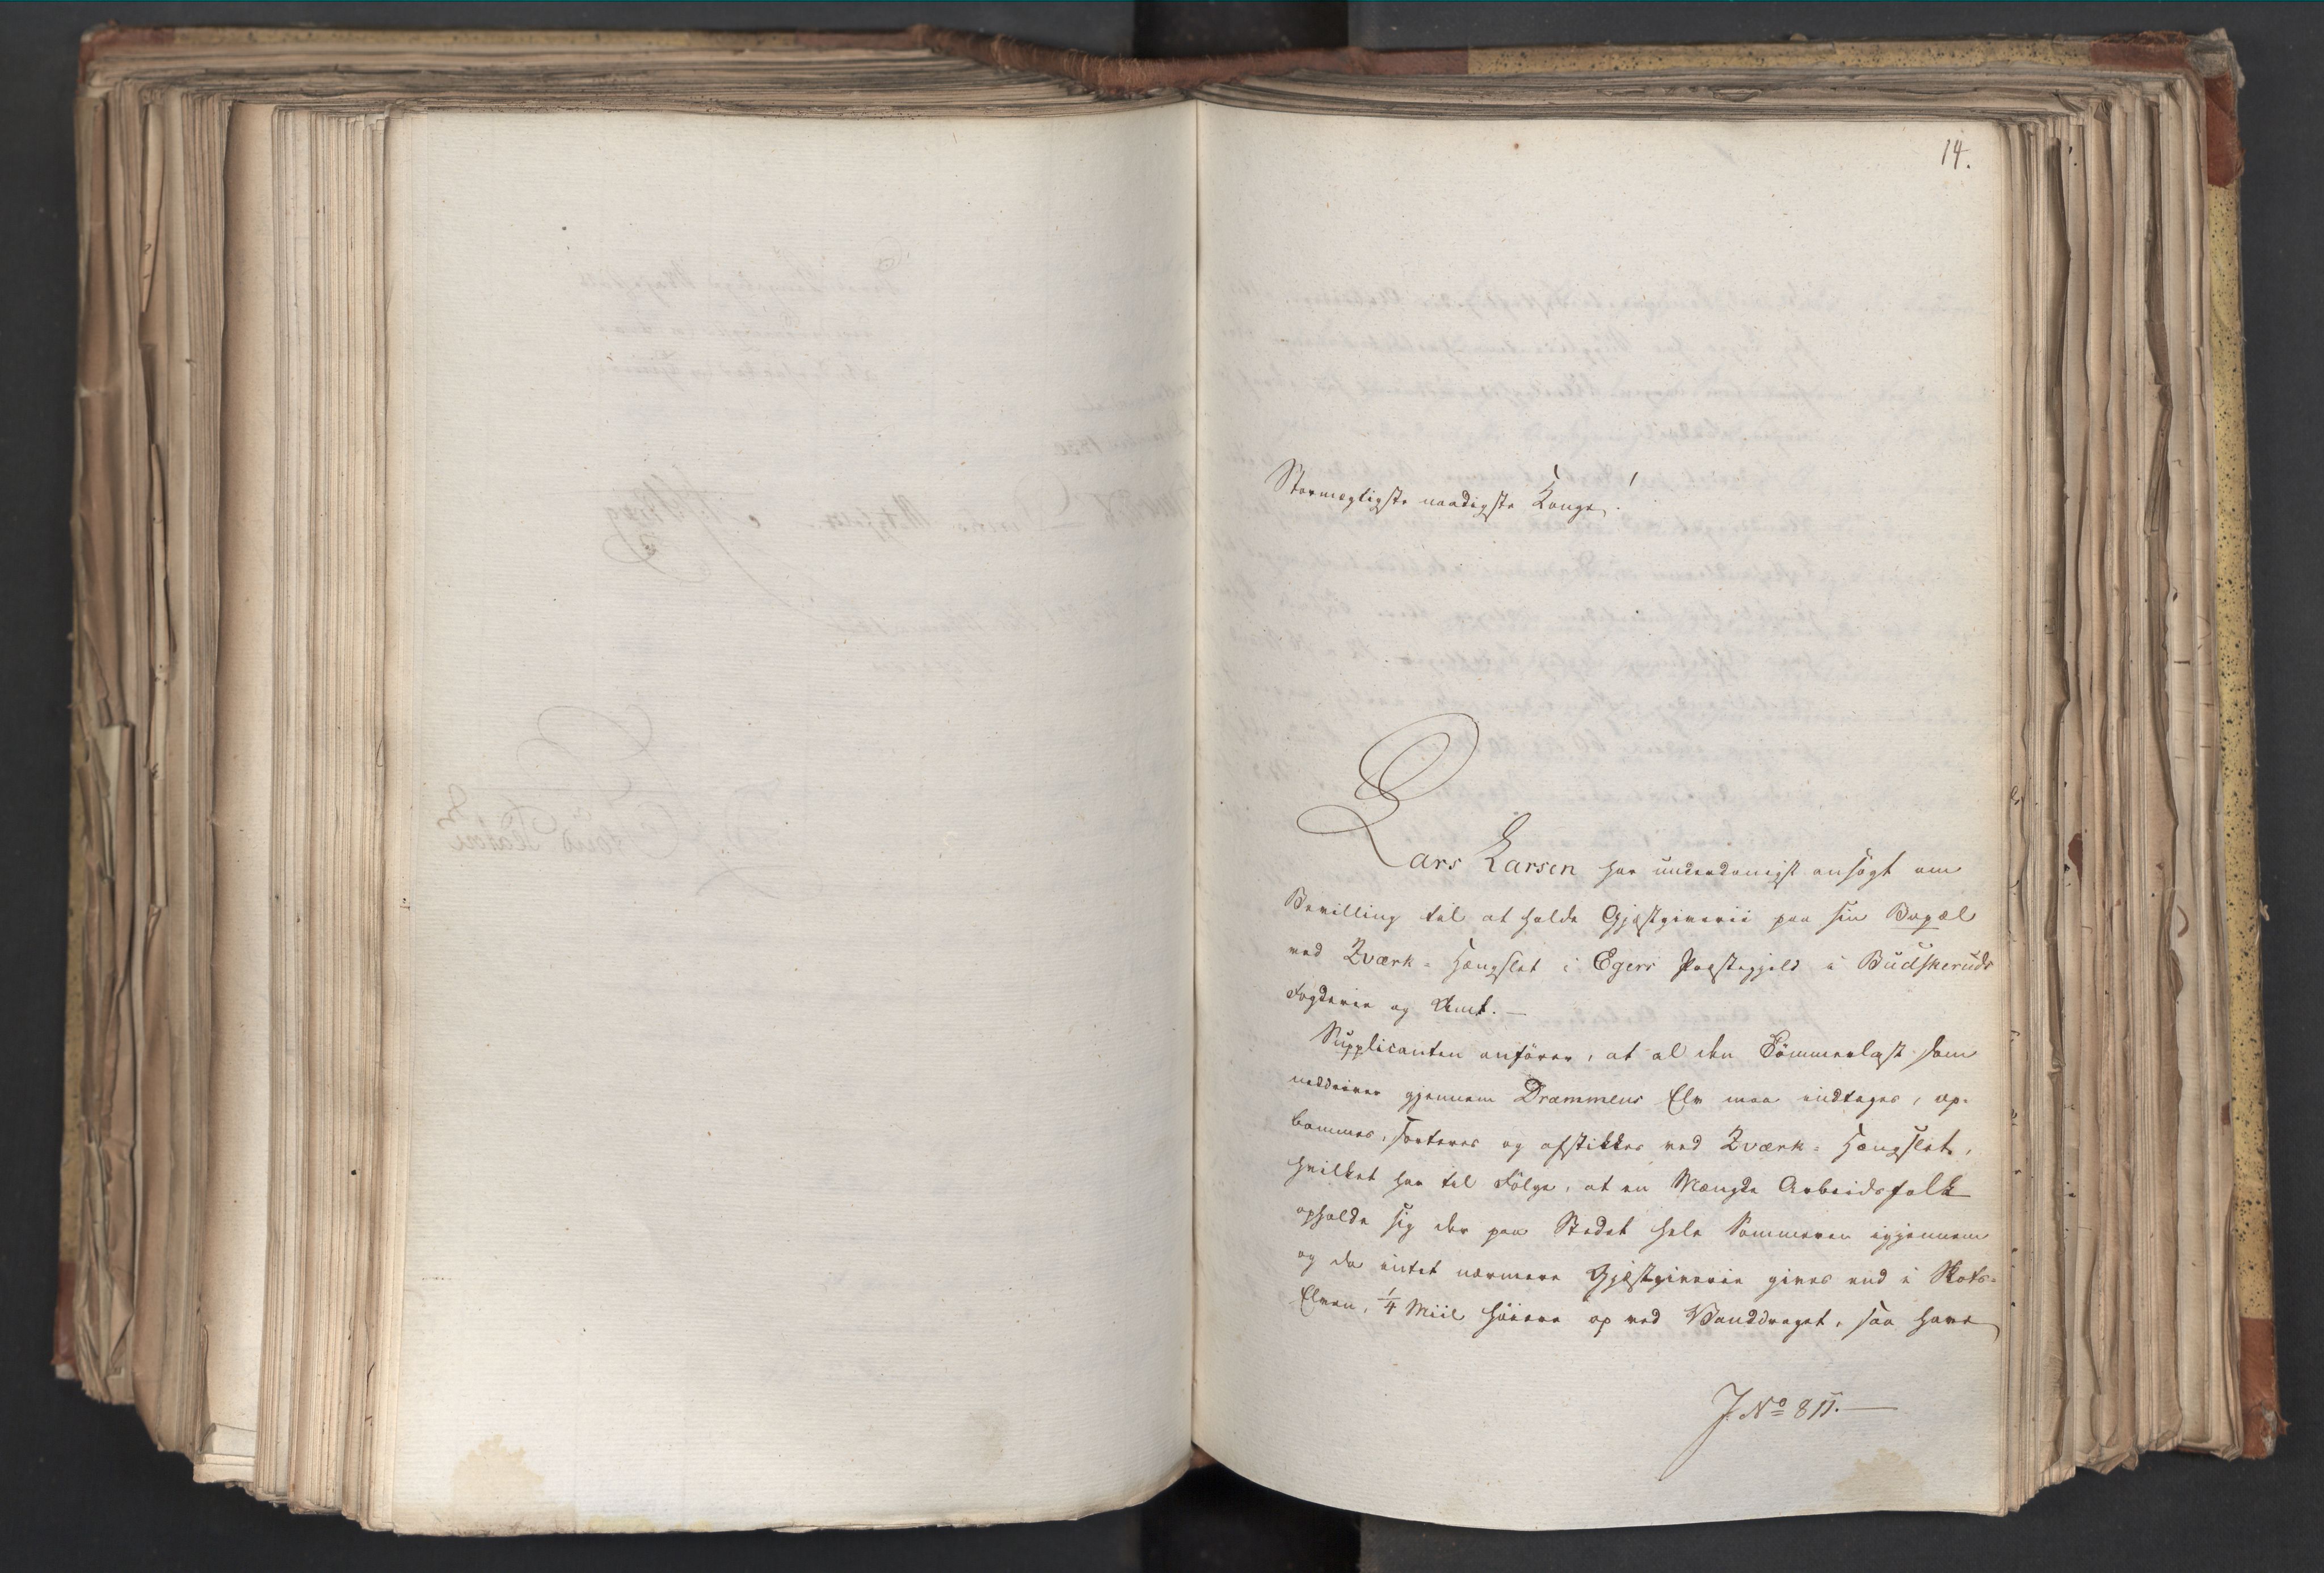 14.
Stormægtigste naadigste Konge!
Lars Larsen har underdanigst ansögt om
Bevilling til at holde Gjæstgiverie paa sin Bopæl
ved Zværk-Hængslet i Egers Præstegjeld i Budskeruds
Fogderie og Amt. —
Supplicanten anförer, at al den Tömmerlast som
neddriver gjennem Drammens Elv maa indtages, op-
bommes, sorteres og afstikkes ved Zværk-Hængslet,
hvilket har til Fölge, at en Mængde Arbeidsfolk
opholde sig der paa Stedet hele Sommeren igjennem
og da intet nærmere Gjæstgiverie gives end i Skots-
Elven, ¼ Miil höiere op ved Vanddraget, saa have
J. No 811. —